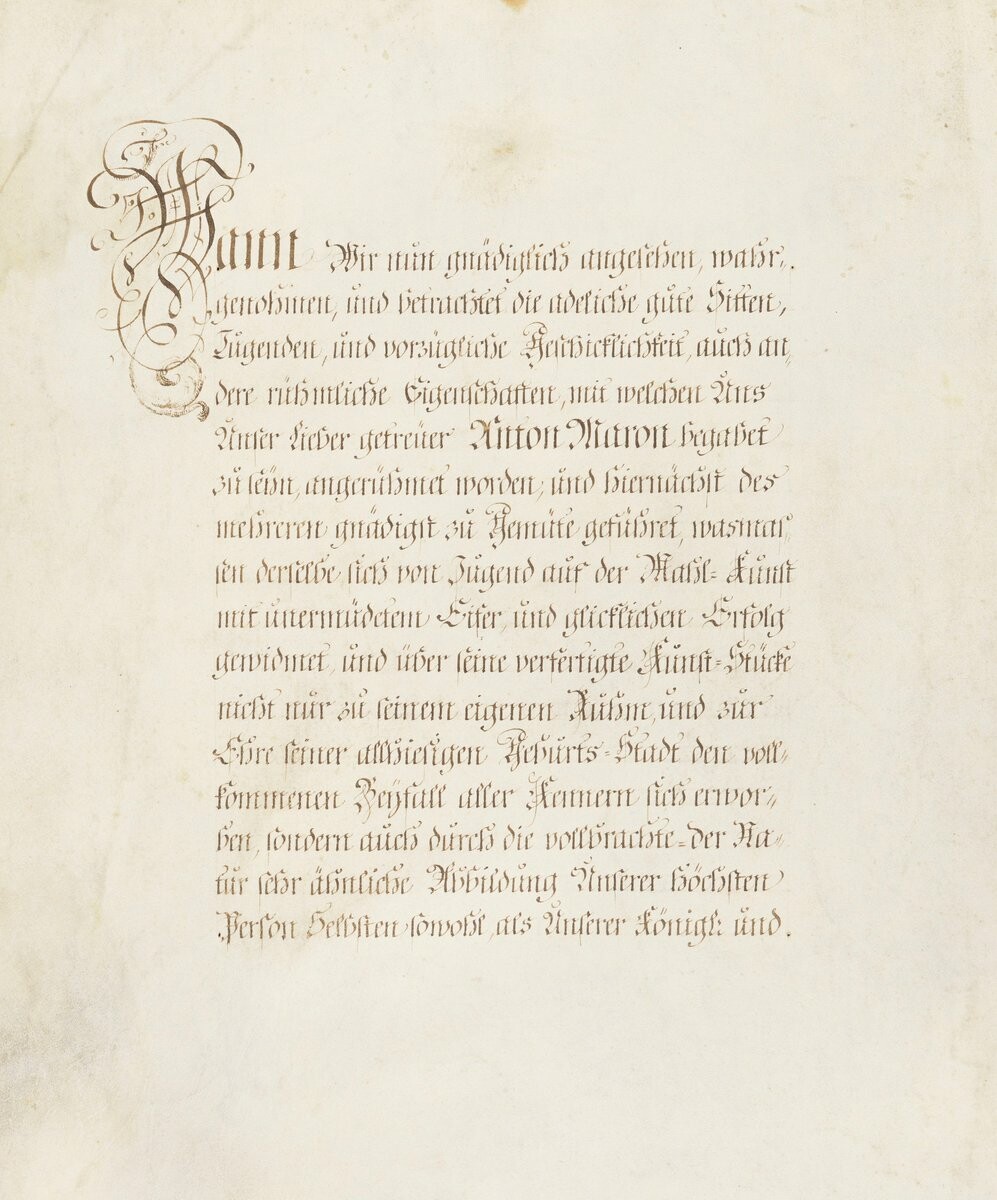 Wann Wir nun gnädiglich angesehen, wahr-
genohmen, und betrachtet die adeliche gute Sitten,
Tugenden, und vorzügliche Geschicklichkeit, auch an-
dere rühmliche Eigenschaften, mit welchen Uns
Unser Lieber getreuer Anton Maron begabet
zu seÿn, angerühmet worden, und hiernächst des
mehreren gnädigst zu Gemüte geführet, wasmas-
sen derselbe sich von Jugend auf der Mahl-Kunst
mit unermüdetem Eifer, und glicklichen Erfolg
gewidmet, und über seine verfertigte Kunst-Stücke
nicht nur zu seinem eigenen Ruhm, und zur
Ehre seiner allhiesigen Geburts-Stadt den voll-
kommenen Beÿfall aller Kennern sich erwor-
ben, sondern auch durch die vollbrachte-der Na-
tur sehr ähnliche Abbildung Unserer höchsten
Person Selbsten sowohl, als Unserer Königl: und